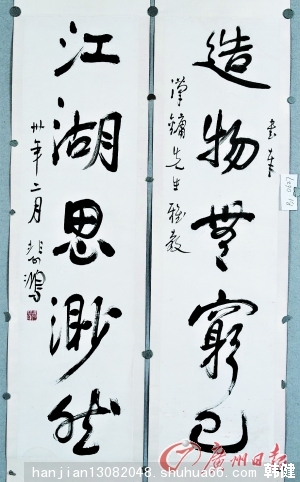 造物無窮已
書奉
漢鏞先生雅教
江湖思渺然
卅年二月
悲鴻
廣州日报
hanjian13082048.shuhua66.com 韩健